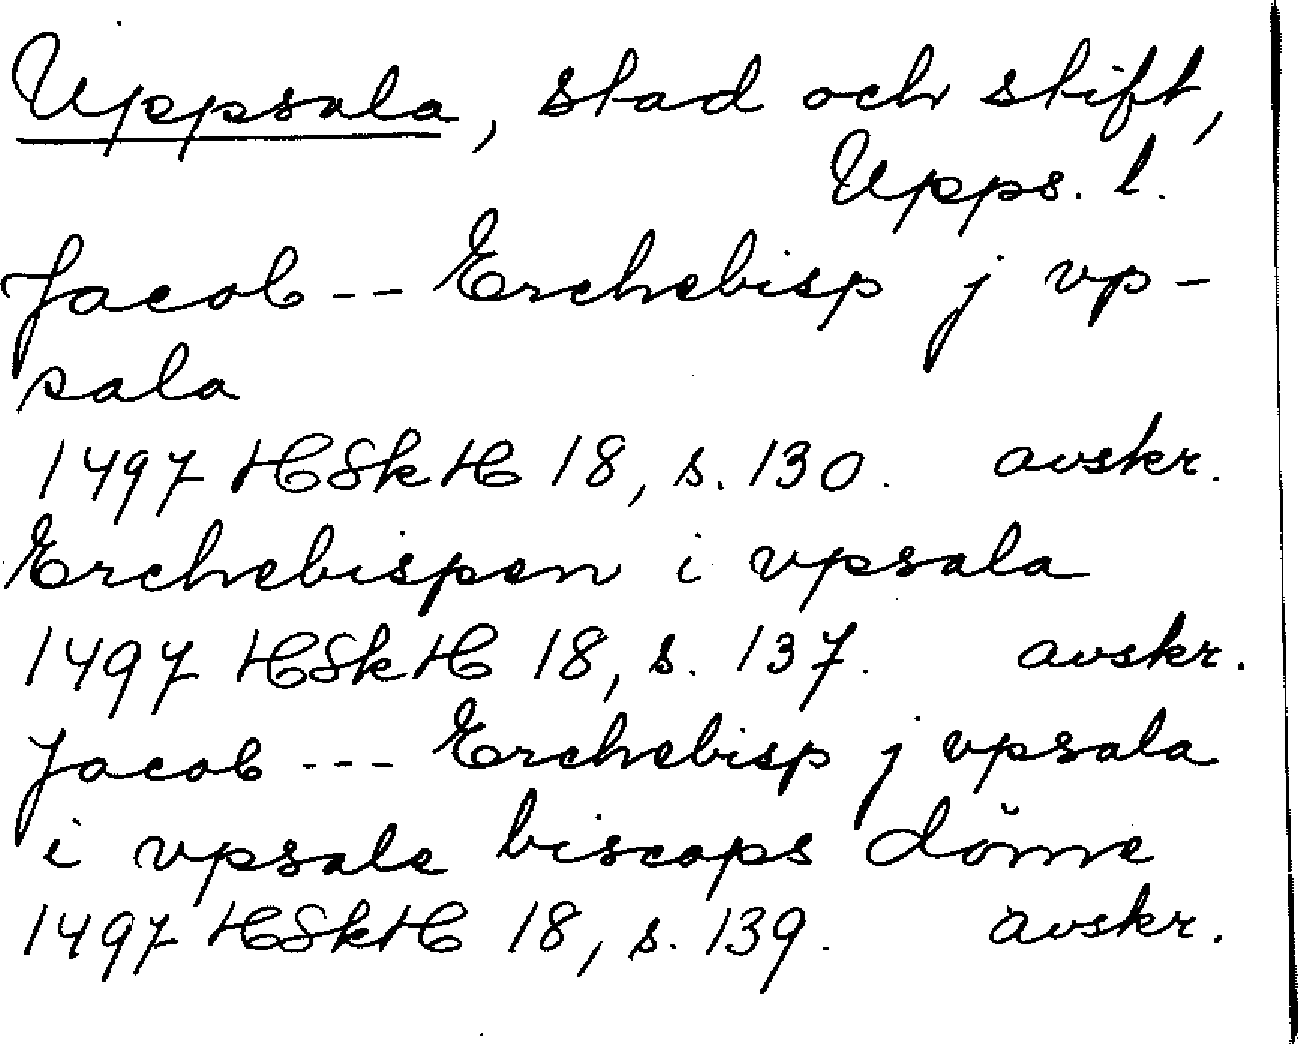 Uppsala, stad och stift,
Upps. l.
Jacob -- Erchebisp j vp-
sala
1497 HSkH 18, s. 130. avskr.
Erchebispen i vpsala
1497 HSkH 18, s. 137. avskr.
Jacob --- Erchebisp j vpsala
i vpsale biscops döme
1497 HSkH 18, s. 139. avskr.